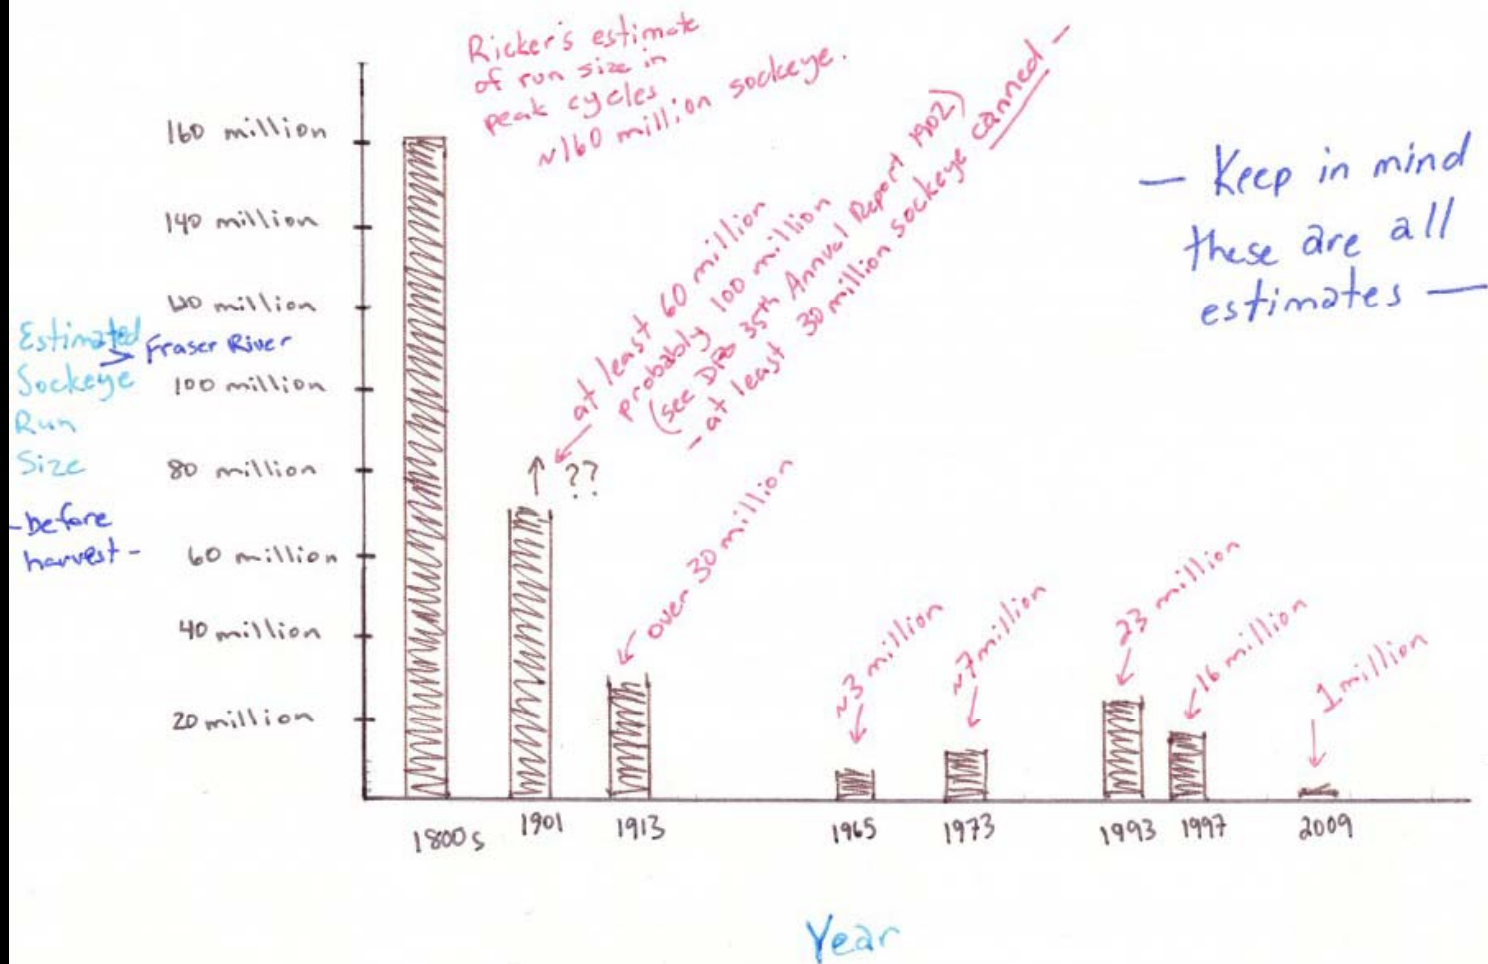 Ricker's estimate
of run size in
peak cycles
~160 million sockeye.
at least 60 million
probably 100 million
(see DFO 35th Annual Report 1902)
- at least 30 million sockeye canned -
- Keep in mind
these are all
estimates -
160 million
140 million
120 million
100 million
80 million
60 million
40 million
20 million
Estimated
> Fraser River
Sockeye
Run
Size
-before
harvest-
↑ ??
over 30 million
~3 million
~7 million
23 million
16 million
1 million
1800s
1901
1913
1965
1973
1993
1997
2009
Year